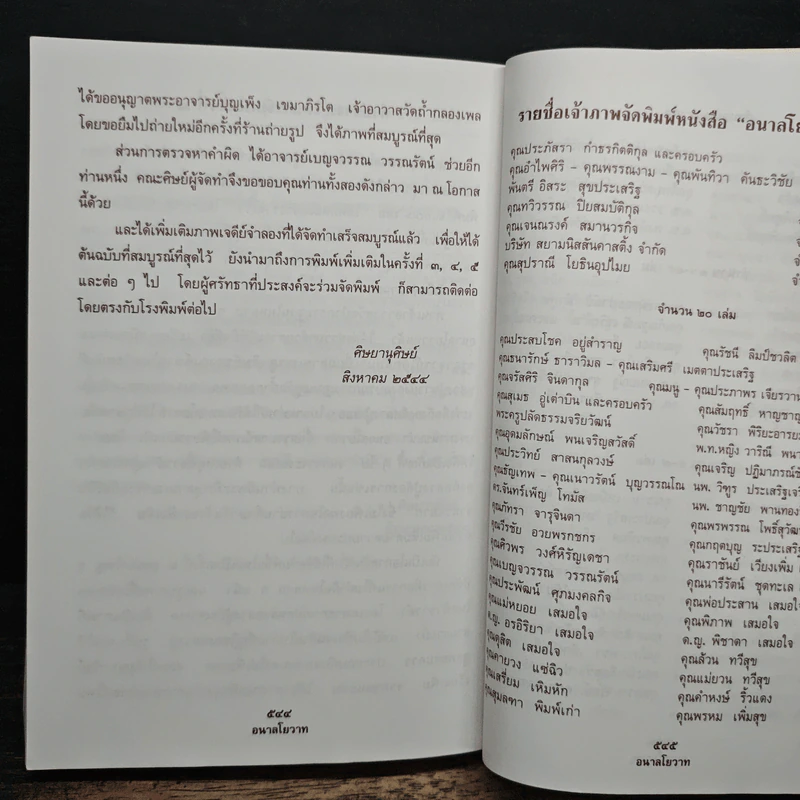 ได้ขออนุญาตพระอาจารย์บุญเพ็ง เขมาภิรโต เจ้าอาวาสวัดถ้ำกลองเพล
โดยขอยืมไปถ่ายใหม่อีกครั้งที่ร้านถ่ายรูป จึงได้ภาพที่สมบูรณ์ที่สุด
ส่วนการตรวจหาคำผิด ได้อาจารย์เบญจวรรณ วรรณรัตน์ ช่วยอีก
ท่านหนึ่ง คณะศิษย์ผู้จัดทำจึงขอขอบคุณท่านทั้งสองดังกล่าว มา ณ โอกาส
นี้ด้วย
และได้เพิ่มเติมภาพเจดีย์จำลองที่ได้จัดทำเสร็จสมบูรณ์แล้ว เพื่อให้ได้
ต้นฉบับที่สมบูรณ์ที่สุดไว้ ยังนำมาถึงการพิมพ์เพิ่มเติมในครั้งที่ ๓, ๔, ๕
และต่อ ๆ ไป โดยผู้ศรัทธาที่ประสงค์จะร่วมจัดพิมพ์ ก็สามารถติดต่อ
โดยตรงกับโรงพิมพ์ต่อไป
ศิษยานุศิษย์
สิงหาคม ๒๕๔๔
๕๔๔
อนาลโยวาท
รายชื่อเจ้าภาพจัดพิมพ์หนังสือ "อนาลโย
คุณประภัสรา กำธรกิตติกุล และครอบครัว
คุณอำไพศิริ – คุณพรรณงาม – คุณพันทิวา คันธะวิชัย
พันตรี อิสระ สุขประเสริฐ
คุณทวิวรรณ ปิยสมบัติกุล
คุณเจนณรงค์ สมานวรกิจ
บริษัท สยามนิสสันคาสติ้ง จำกัด
คุณสุปราณี โยธินอุปไมย
จำนวน ๒๐ เล่ม
คุณประสบโชค อยู่สำราญ คุณรัชนี ลิมป์ชวลิต
คุณธนารักษ์ ธาราวิมล – คุณเสริมศรี เมตตาประเสริฐ
คุณจรัสศิริ จินดากุล คุณมนู – คุณประภาพร เจียรวาน
คุณสุเมธ อู่เต่าบิน และครอบครัว คุณสัมฤทธิ์ หาญชาญ
พระครูปลัดธรรมจริยวัฒน์ คุณวัชรา พิริยะอารยะ
คุณอุดมลักษณ์ พนเจริญสวัสดิ์ พ.ท.หญิง วาริณี พนา
คุณประวิทย์ สาสนกุลวงษ์ คุณเจริญ ปฏิมาภรณ์ชัย
คุณธัญเทพ – คุณเนาวรัตน์ บุญวรรณโณ นพ. วิฑูร ประเสริฐเจริ
ดร.จันทร์เพ็ญ โทมัส นพ. ชาญชัย พานทอง
คุณภัทรา จารุจินดา คุณพรพรรณ โพธิ์สุวัฒ
คุณวีรชัย อวยพรกชกร คุณกฤตบุญ ระประเสริฐ
คุณศิวพร วงศ์หิรัญเดชา คุณราชันย์ เวียงเพิ่ม
คุณเบญจวรรณ วรรณรัตน์ คุณนารีรัตน์ ชุดทะเล
คุณประพัฒน์ ศุภมงคลกิจ คุณพ่อประสาน เสมอใจ
คุณแม่หยอย เสมอใจ คุณพิภาพ เสมอใจ
ด.ญ. อรอิริยา เสมอใจ ด.ญ. พิชาดา เสมอใจ
คุณดุสิต เสมอใจ คุณล้วน ทวีสุข
คุณคายวง แซ่ฉิ่ว คุณแม่ยวน ทวีสุข
คุณเตรี่ยม เหิมหัก คุณคำหงษ์ ริ้วแดง
คุณสุมลฑา พิมพ์เก่า คุณพรหม เพิ่มสุข
๕๔๕
อนาลโยวาท